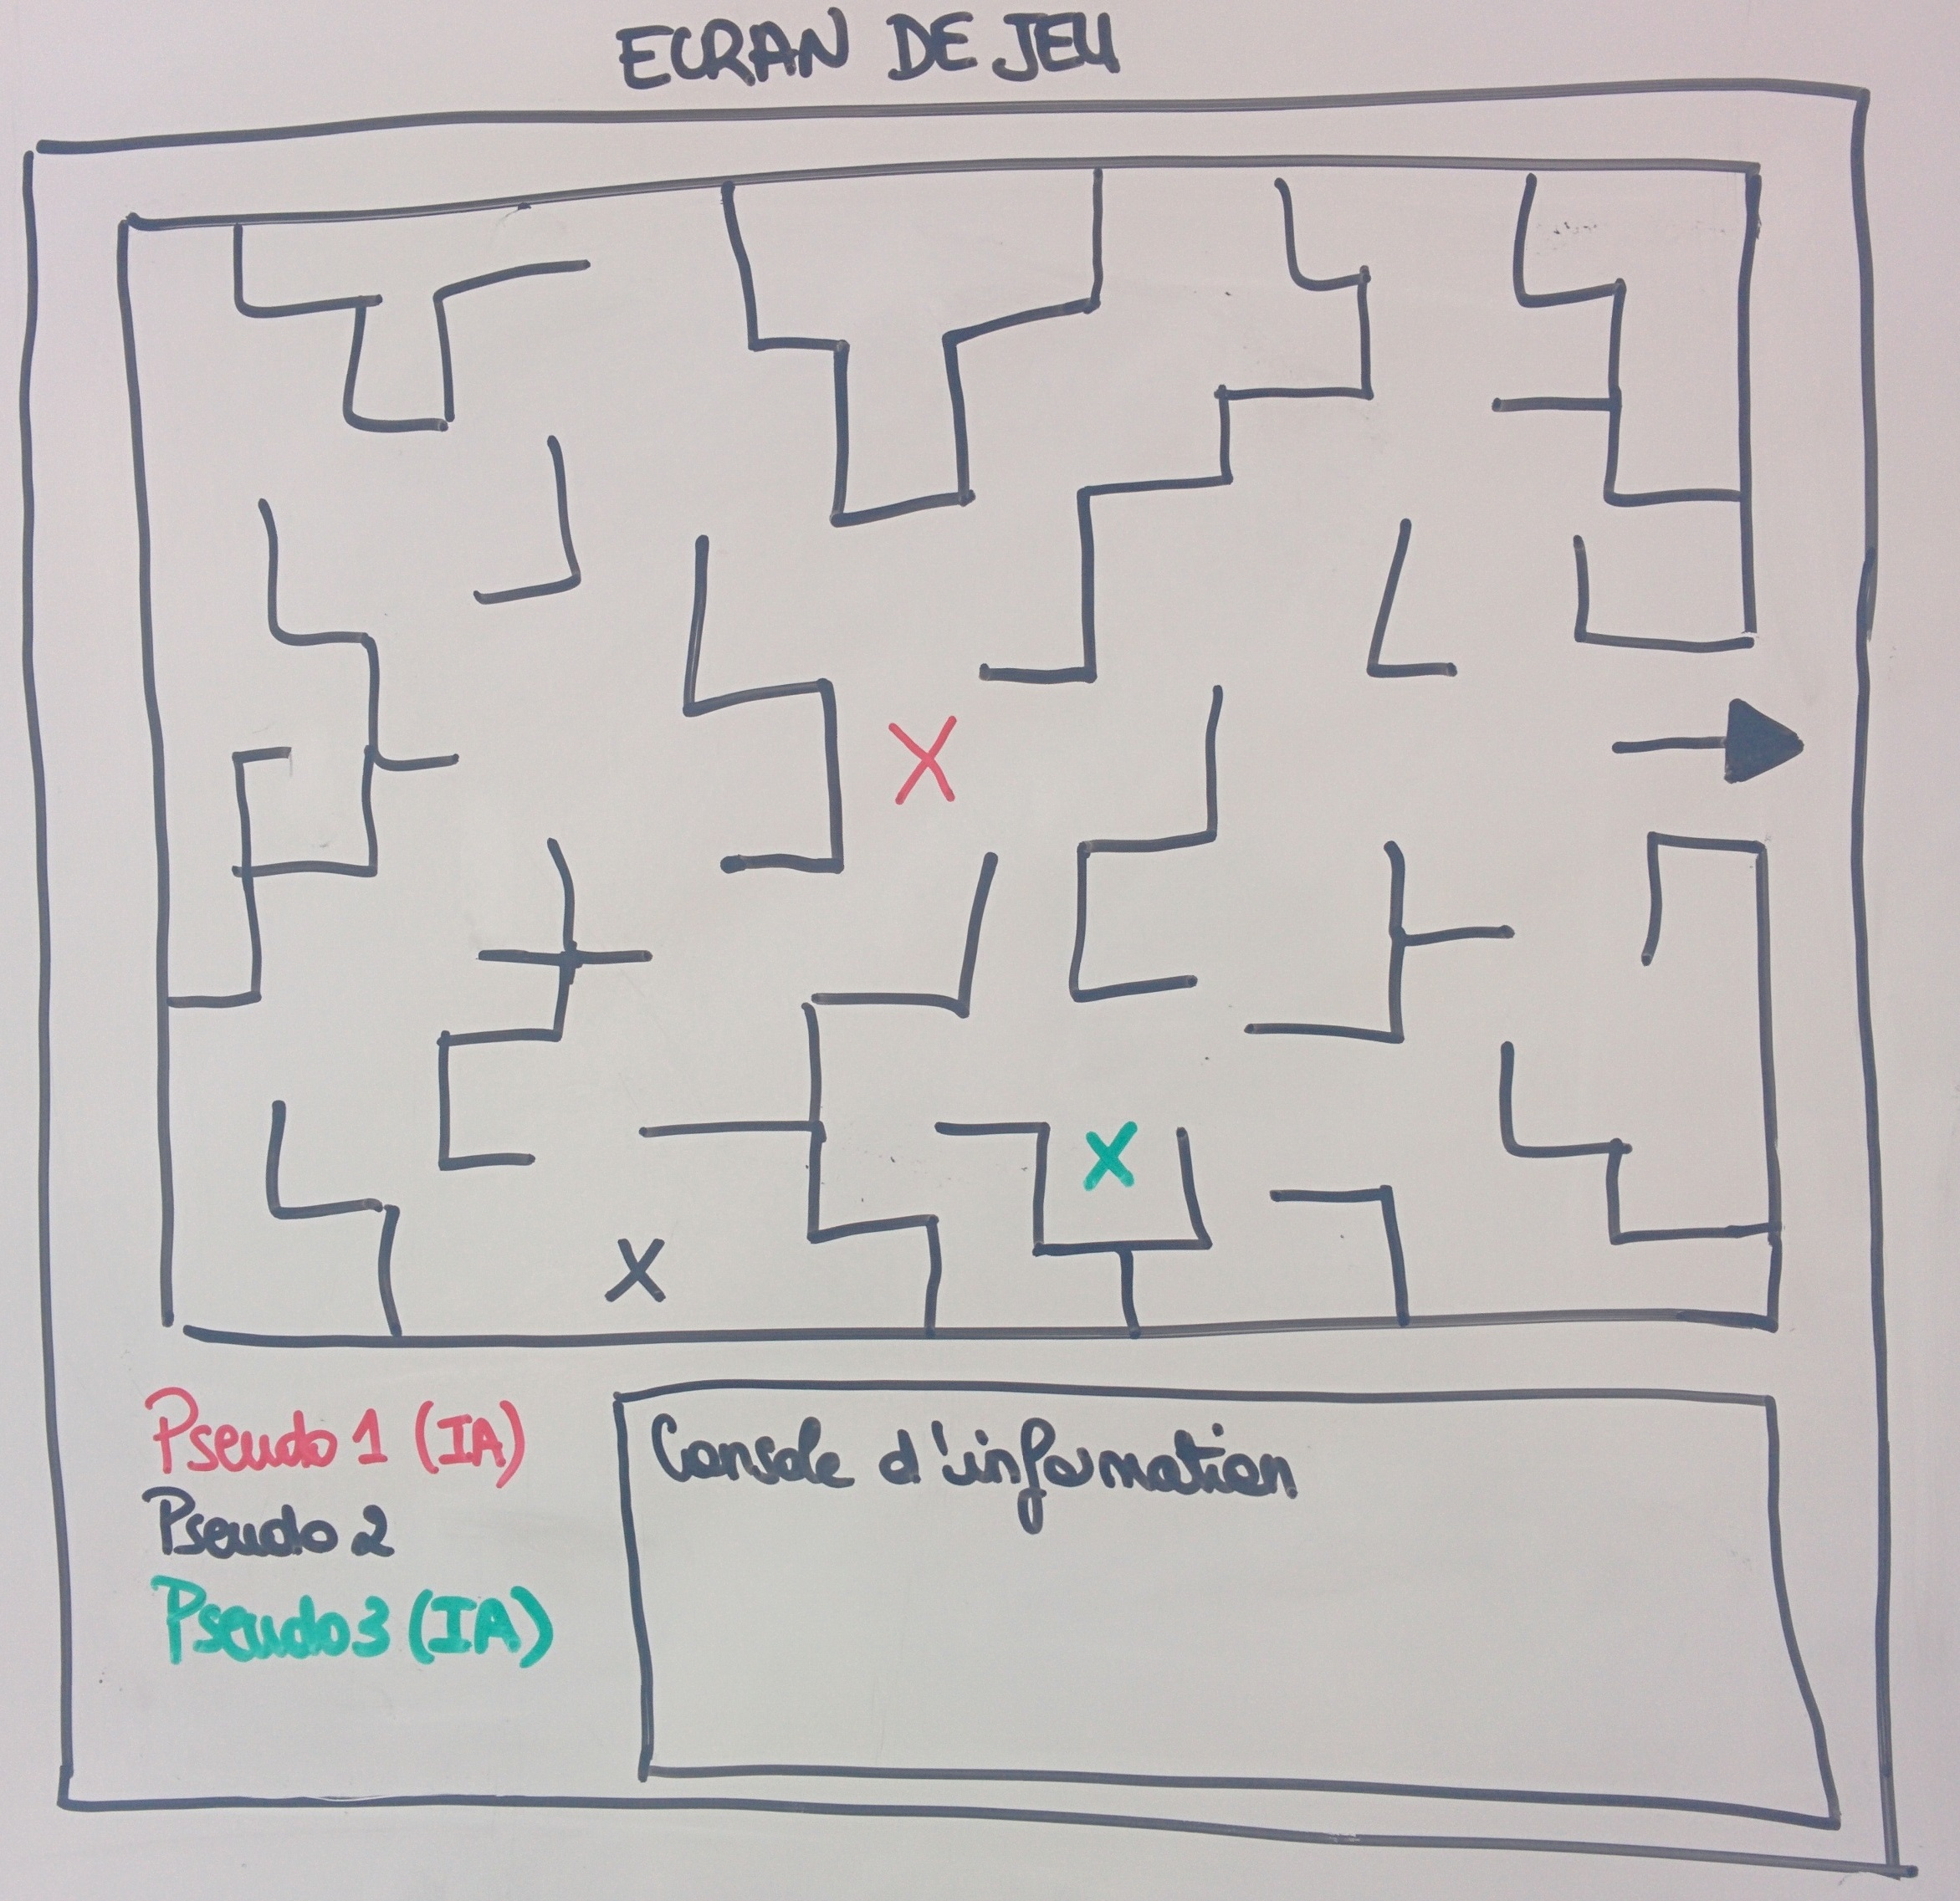 ECRAN DE JEU
X
X
X
Pseudo 1 (IA)
Pseudo 2
Pseudo 3 (IA)
Console d'information